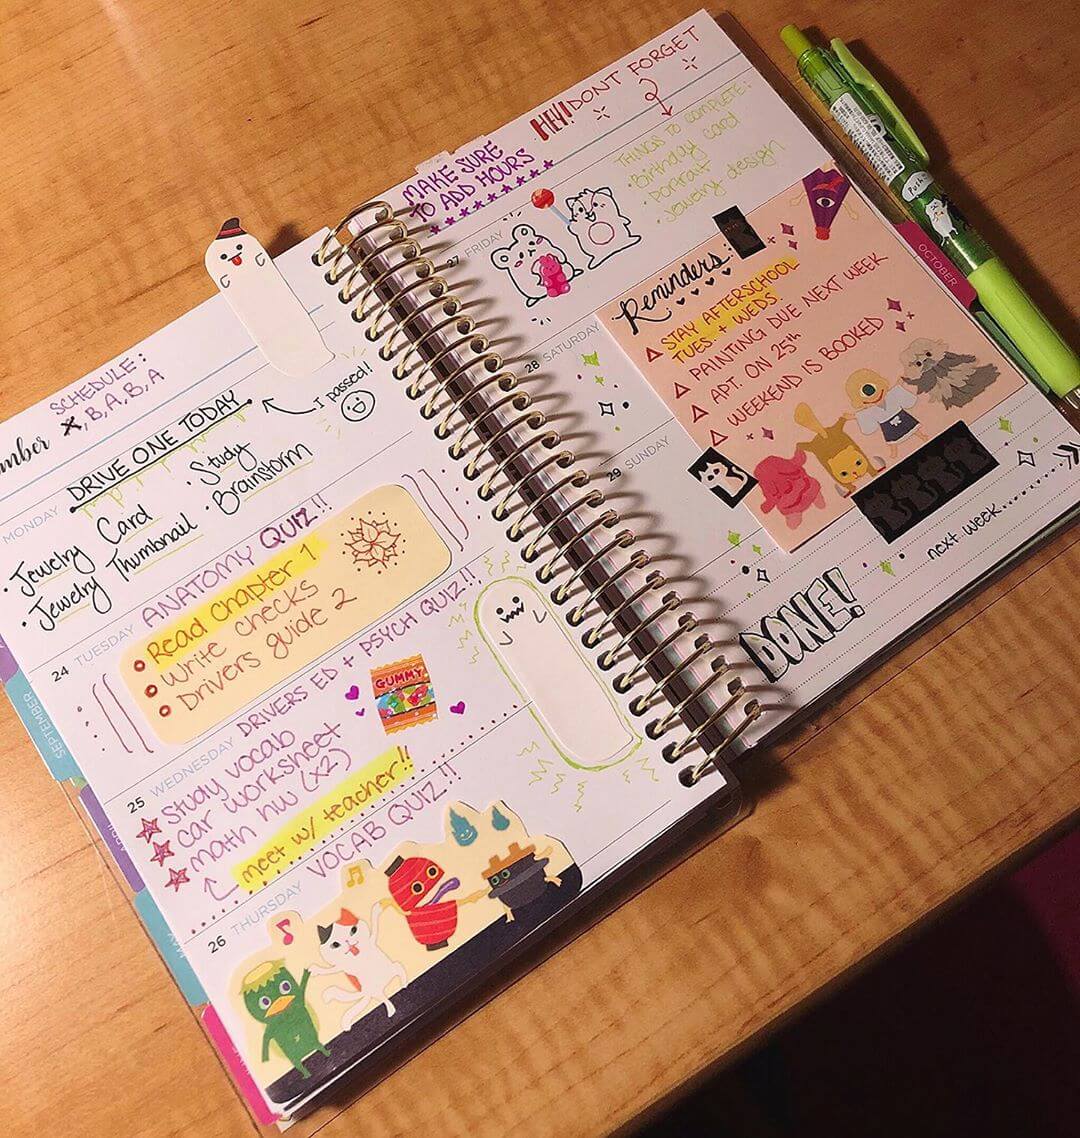 SCHEDULE:
X, B, A, B, A
mber
I passed!
MONDAY
DRIVE ONE TODAY
• Jewelry Card
• Jewelry Thumbnail
• Study
Brainstorm
24 TUESDAY
ANATOMY QUIZ!!!
Read chapter 1
Write checks
Drivers guide 2
25 WEDNESDAY
DRIVERS ED + PSYCH QUIZ!!
study vocab
car worksheet
math hw (x2)
meet w/ teacher!!
GUMMY
26 THURSDAY
VOCAB QUIZ!!
SEPTEMBER
MAKE SURE
TO ADD HOURS
HEY! DONT FORGET
27 FRIDAY
THINGS TO COMPLETE:
• Birthday card
• Portrait
• Jewelry design
28 SATURDAY
Reminders:
STAY AFTERSCHOOL
TUES + WEDS
PAINTING DUE NEXT WEEK
APT. ON 25th
WEEKEND IS BOOKED
29 SUNDAY
next week......
DONE!
OCTOBER
Push